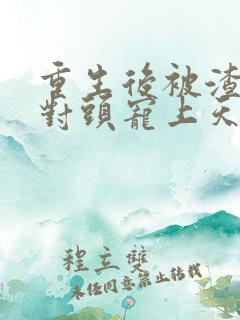 重生後被渣
對頭寵上天
程立雙
未任同意禁止轉載